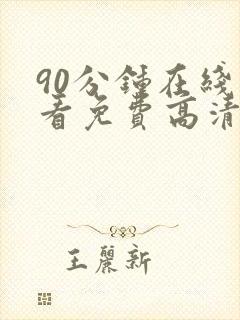 90分鍾在綫
看免費高清
王麗新